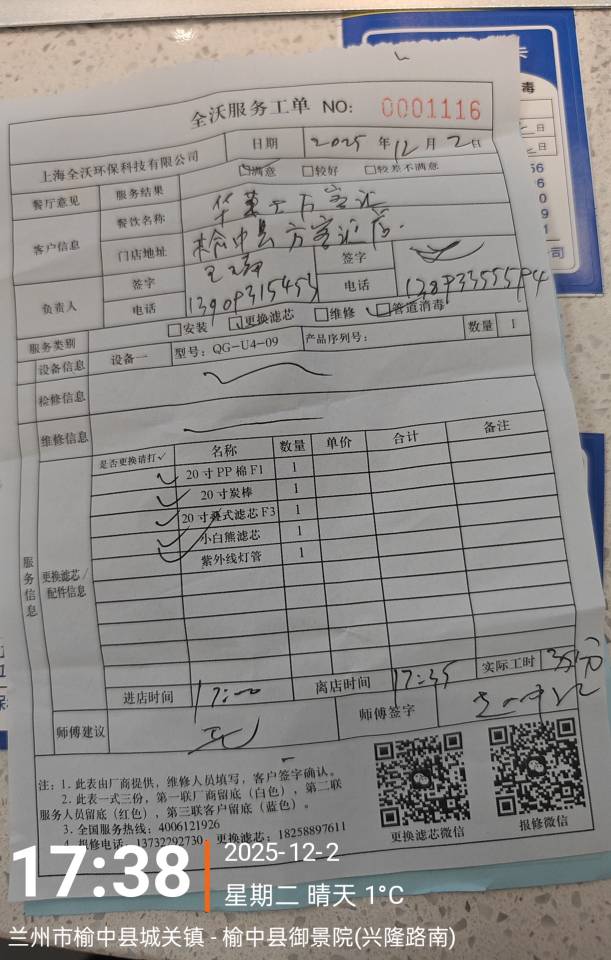 全沃服务工单 NO: 0001116
上海全沃环保科技有限公司 日期 2025年12月2日
餐厅意见 服务结果 ☑满意 □较好 □较差不满意
客户信息 餐饮名称
门店地址 榆中县方家泉店
负责人 签字 签字
电话 电话
服务类别 □安装 ☑更换滤芯 □维修 ☑管道消毒
设备信息 设备一 型号: QG-U4-09 产品序列号: 数量 1
检修信息
维修信息
服务信息 更换滤芯/配件信息
是否更换请打✓ 名称 数量 单价 合计 备注
✓ 20寸PP棉F1 1
✓ 20寸炭棒 1
✓ 20寸叠式滤芯F3 1
✓ 小白熊滤芯 1
✓ 紫外线灯管 1
进店时间 17:00 离店时间 17:35 实际工时 35分
师傅建议 无 师傅签字
注: 1. 此表由厂商提供，维修人员填写，客户签字确认。
2. 此表一式三份，第一联厂商留底（白色），第二联
服务人员留底（红色），第三联客户留底（蓝色）。
3. 全国服务热线: 4006121926
4. 报修电话: 13732292730 更换滤芯: 18258897611
更换滤芯微信 报修微信
卡
毒
日
日
56
6
0
9
1
司
17:38
2025-12-2
星期二 晴天 1°C
兰州市榆中县城关镇 - 榆中县御景院(兴隆路南)